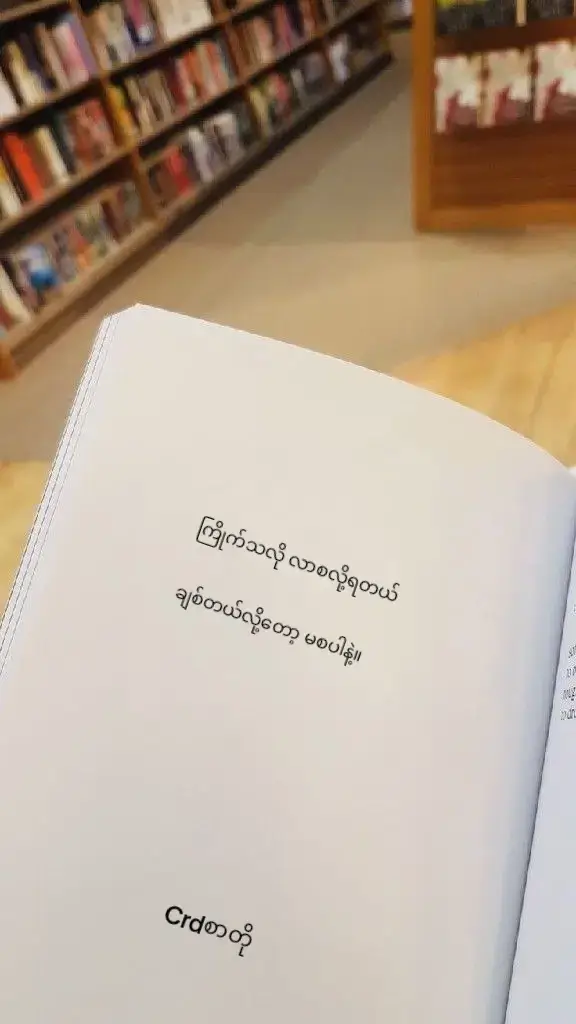 ကြိုက်သလို လာစလို့ရတယ်
ချစ်တယ်လို့တော့ မစပါနဲ့။
Crdစာတို